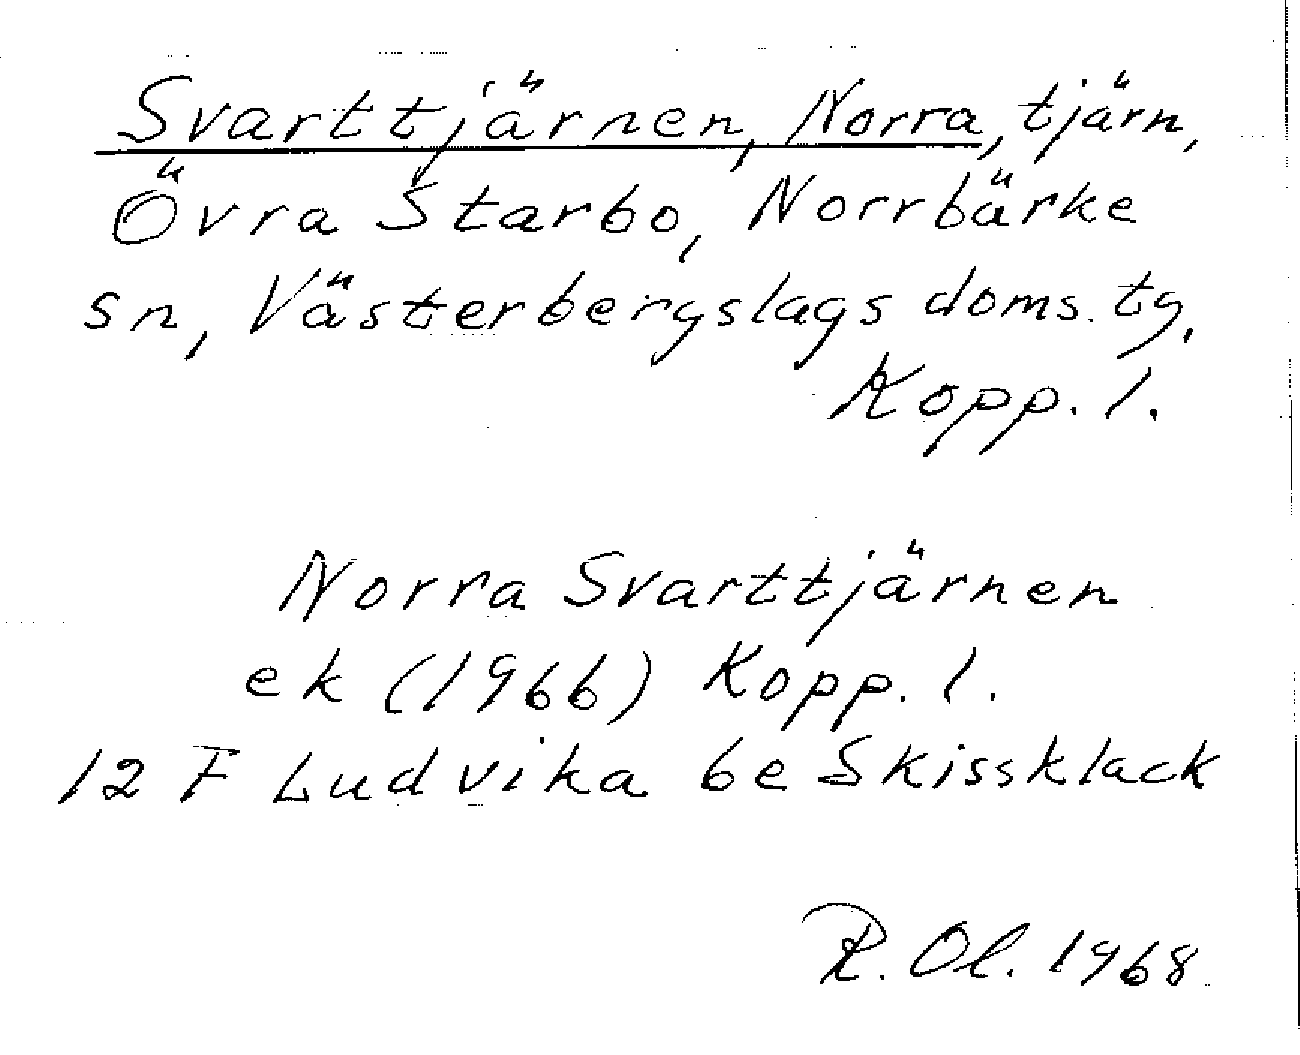 Svarttjärnen, Norra, tjärn,
Övra Starbo, Norrbärke
sn, Västerbergslags doms. tg,
Kopp. l.
Norra Svarttjärnen
ek (1966) Kopp. l.
12 F Ludvika be Skissklack
R. Ol. 1968.